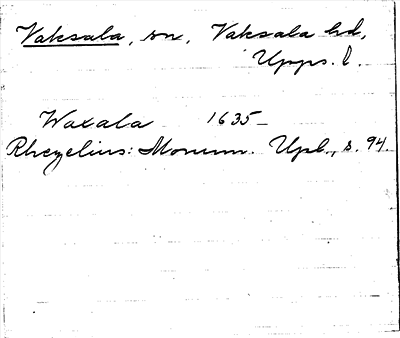 Vaksala, sn, Vaksala hd,
Upps. l.
Waxala 1635
Rhezelius: Monum. Upl., s. 94.